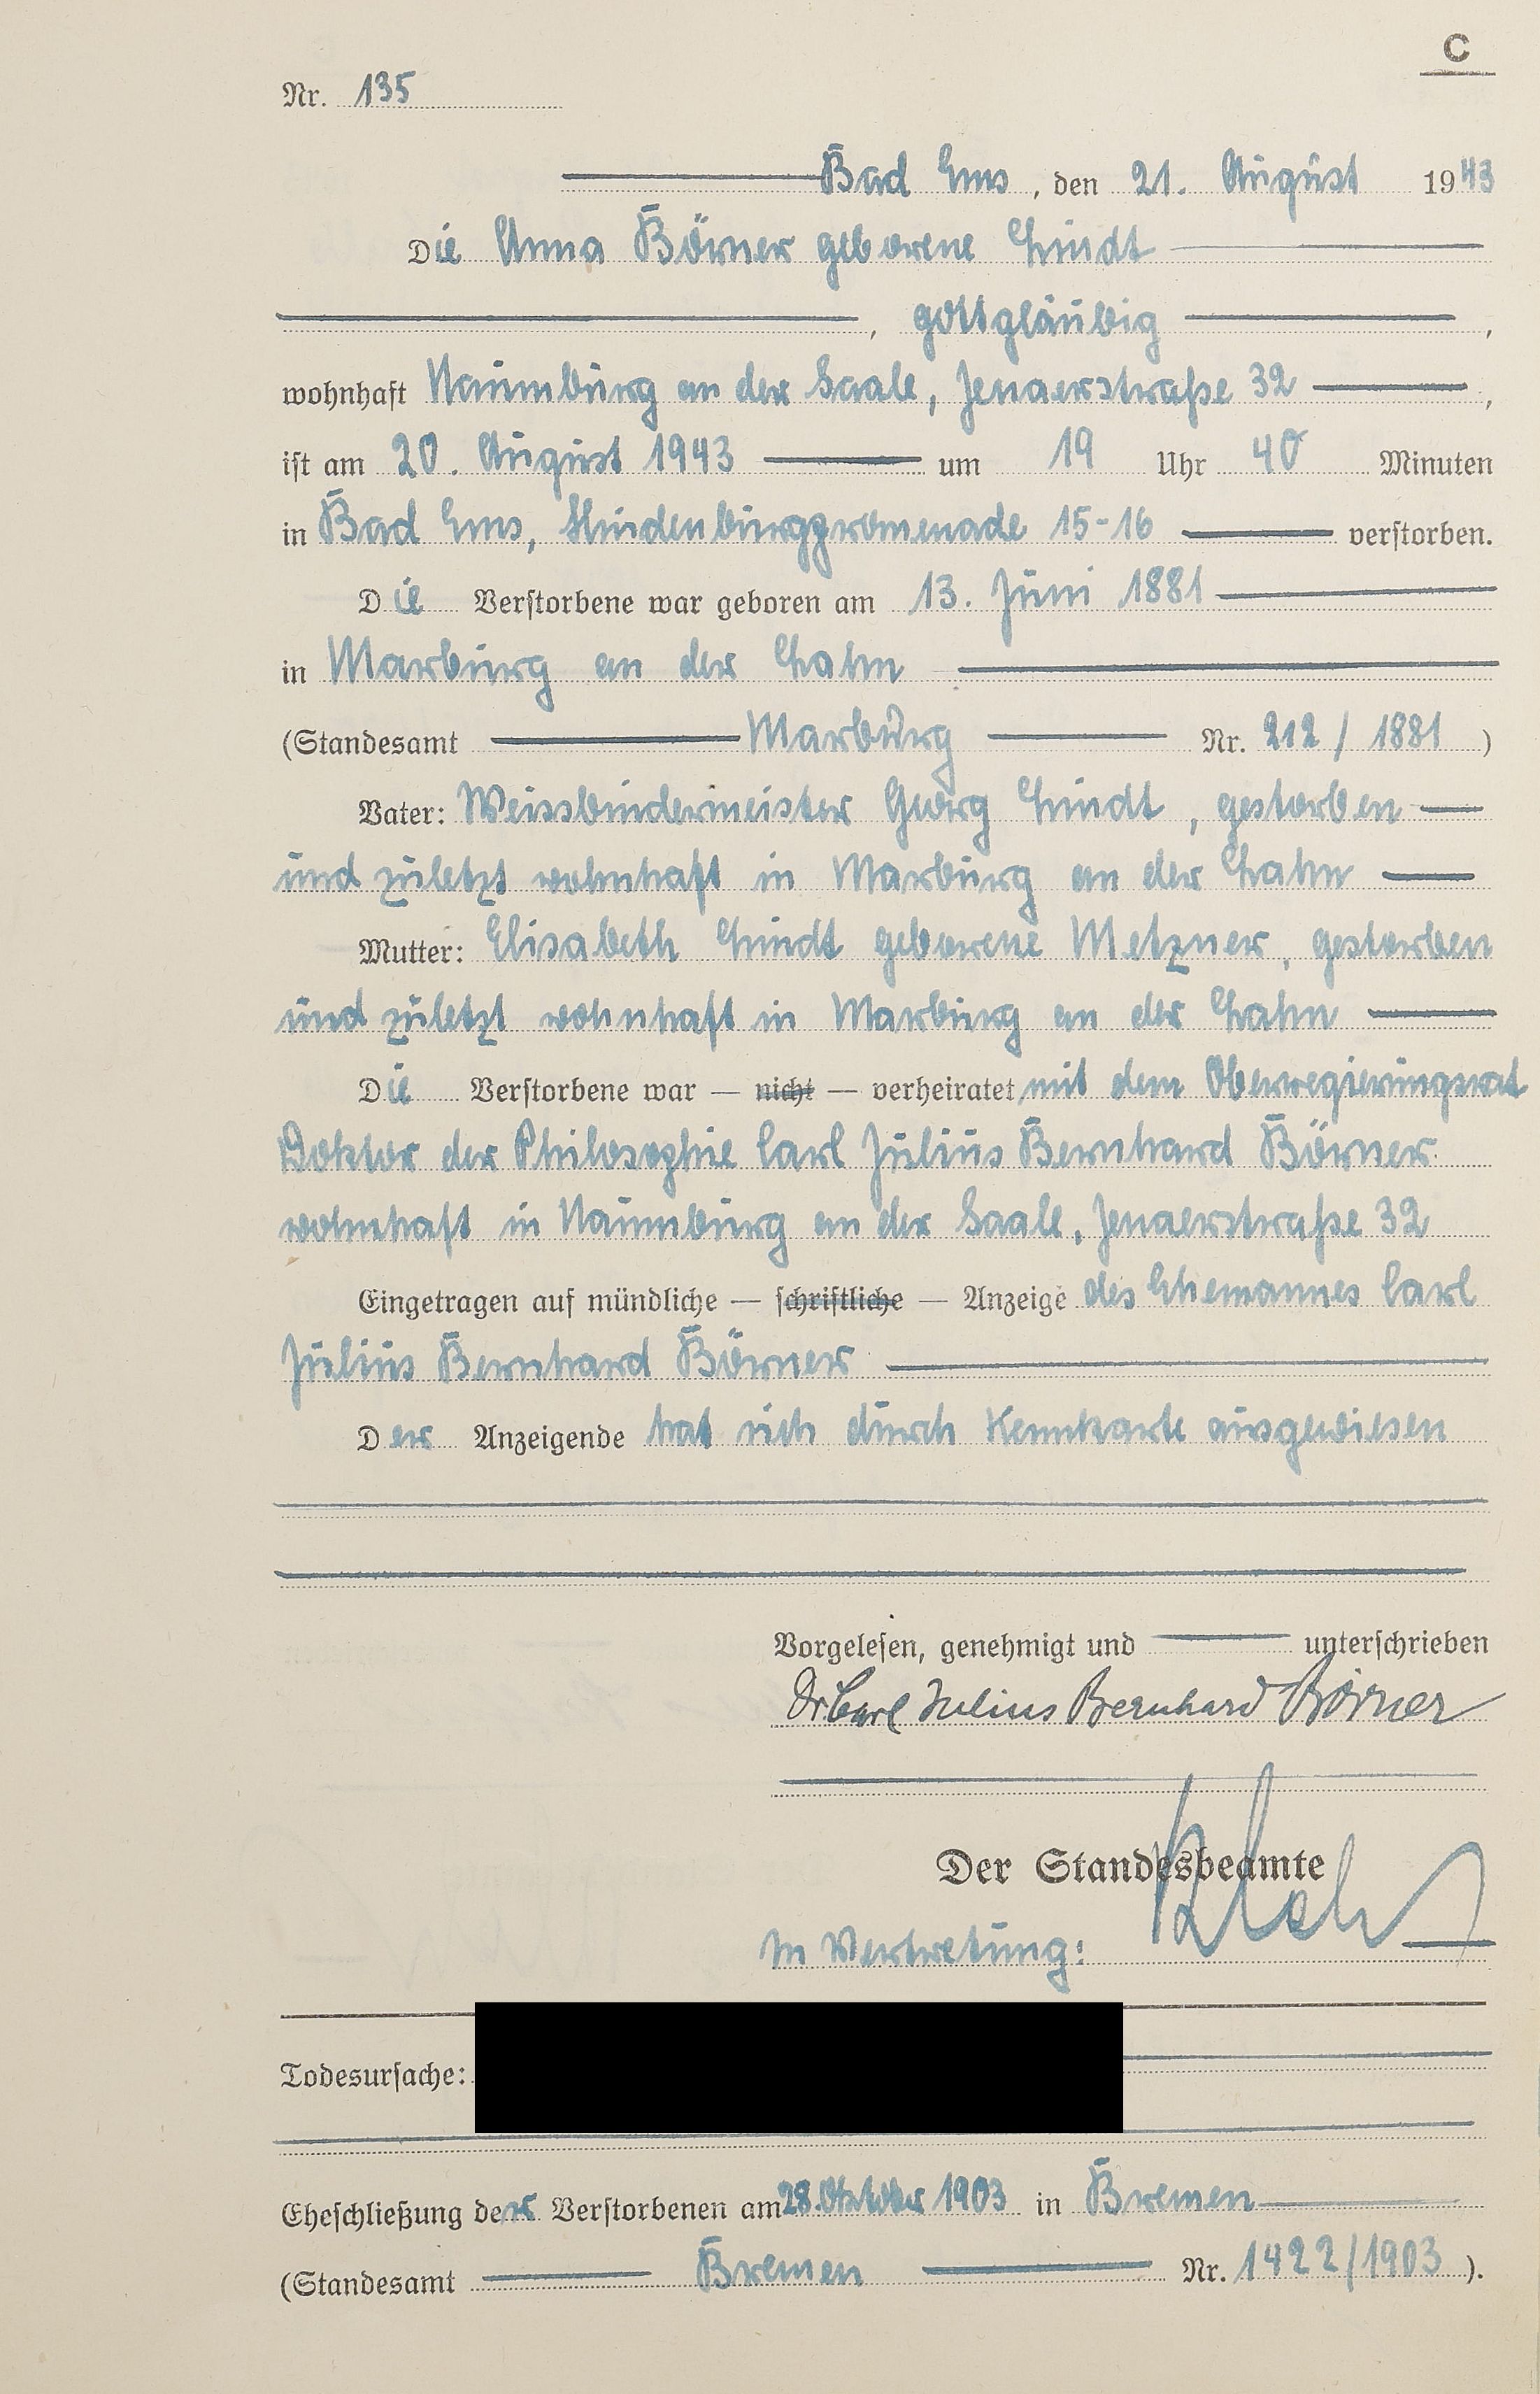 C
Nr. 135
Bad Ems, den 21. August 1943
Die Anna Börner geborene Lindt
, gottgläubig ,
wohnhaft Naumburg an der Saale, Jenaerstraße 32 ,
ist am 20. August 1943 um 19 Uhr 40 Minuten
in Bad Ems, Hindenburgpromenade 15-16 verstorben.
Die Verstorbene war geboren am 13. Juni 1881
in Marburg an der Lahn
(Standesamt Marburg Nr. 212 / 1881 )
Vater: Weissbindermeister Georg Lindt, gestorben
und zuletzt wohnhaft in Marburg an der Lahn
Mutter: Elisabeth Lindt geborene Metzner, gestorben
und zuletzt wohnhaft in Marburg an der Lahn
Die Verstorbene war — nicht — verheiratet mit dem Oberregierungsrat
Doktor der Philosophie Carl Julius Bernhard Börner
wohnhaft in Naumburg an der Saale, Jenaerstraße 32
Eingetragen auf mündliche — schriftliche — Anzeige des Ehemannes Carl
Julius Bernhard Börner
Der Anzeigende hat sich durch Kennkarte ausgewiesen
Vorgelesen, genehmigt und unterschrieben
Dr Carl Julius Bernhard Börner
Der Standesbeamte
In Vertretung:
Todesursache:
Eheschließung der Verstorbenen am 28. Oktober 1903 in Bremen
(Standesamt Bremen Nr. 1422/1903 ).